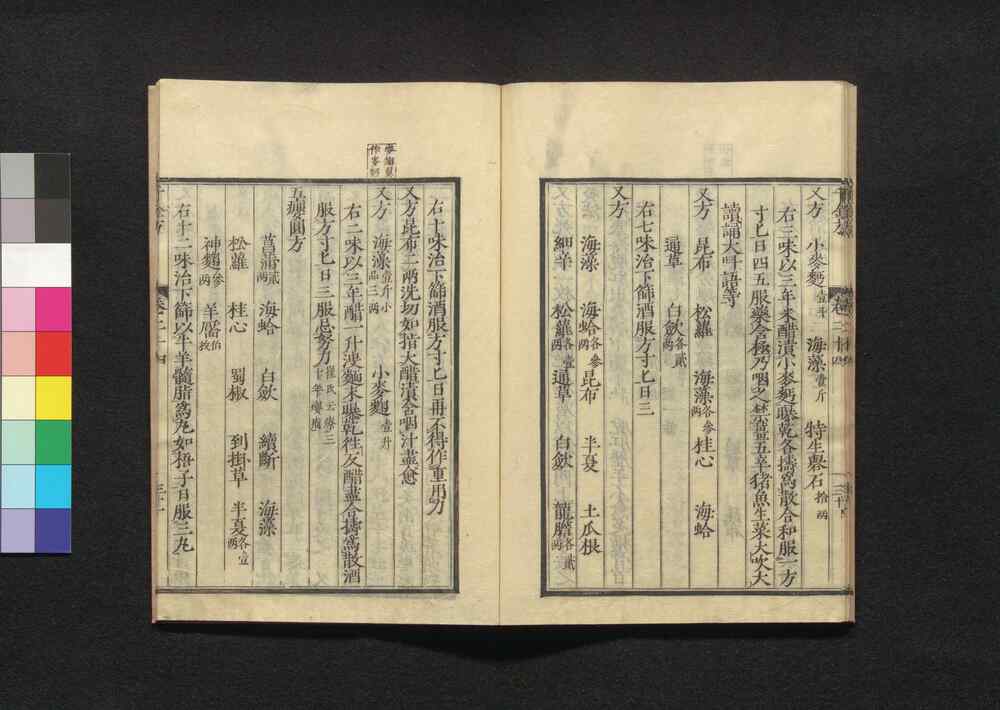 又方 小麥麪壹升 海藻壹斤 特生礬石拾兩
右三味以三年米醋漬小麥麪曝乾各擣爲散合和服一方
寸匕日四五服藥含極乃咽之禁薑五辛猪魚生菜大吹大
讀誦大叫語等
又方 昆布 松蘿 海藻各參兩 桂心 海蛤
通草 白斂各貳兩
右七味治下篩酒服方寸匕日三
又方 海藻 海蛤各參兩 昆布 半夏 土瓜根
細辛 松蘿各壹兩 通草 白斂 龍膽各貳兩
右十味治下篩酒服方寸匕日再不得作重用力
又方昆布二兩洗切如指大醋漬含咽汁盡愈
又方 海藻壹斤小品三兩 小麥麪壹升
右二味以三年醋一升溲麪末曝乾往反醋盡合擣爲散酒
服方寸匕日三服忌努力崔氏云療三十年癭瘤
五癭圓方
菖蒲貳兩 海蛤 白斂 續斷 海藻
松蘿 桂心 蜀椒 到掛草 半夏各壹兩
神麴參兩 羊靨佰枚
右十二味治下篩以牛羊髓脂爲丸如梧子日服三丸